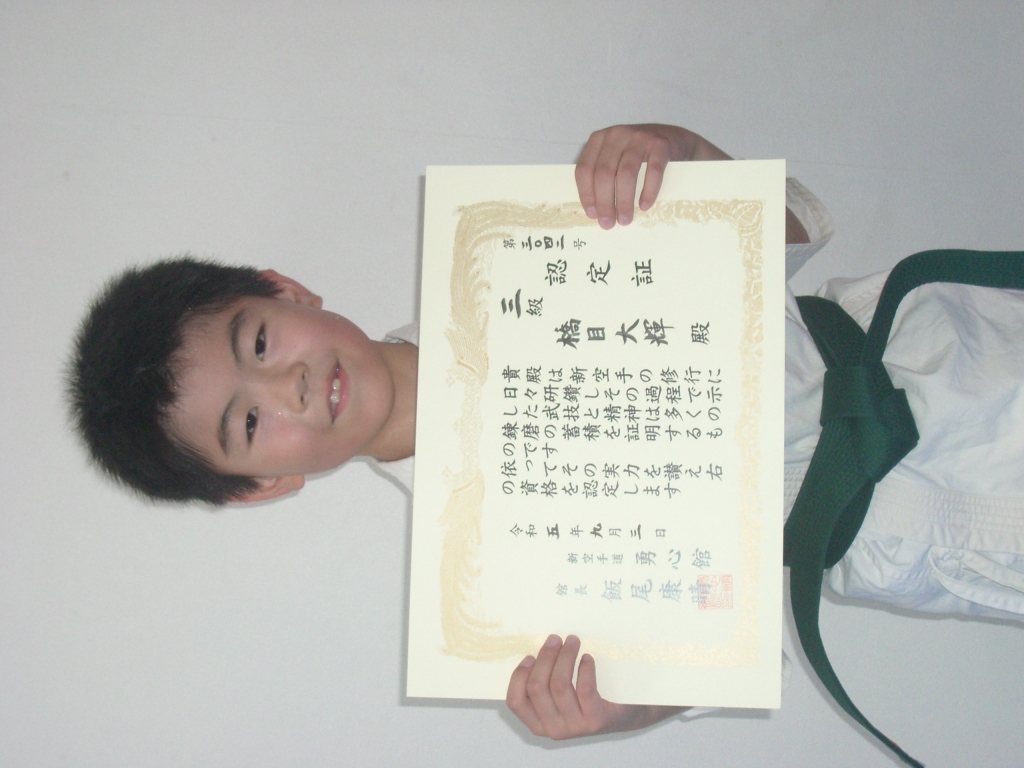 第三〇四二号
認定証
三級
橋目大輝殿
貴殿は新空手の修行に
日々研鑽しその過程で示
した武技と精神は多くの
錬磨の蓄積を証明するも
のです
依ってその実力を讃え右
の資格を認定します
令和五年九月三日
新空手道 勇心館
館長 飯尾康晴